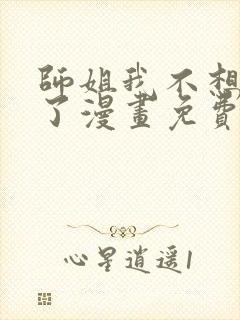 師姐我不想
了漫畫免費
心星逍遥1